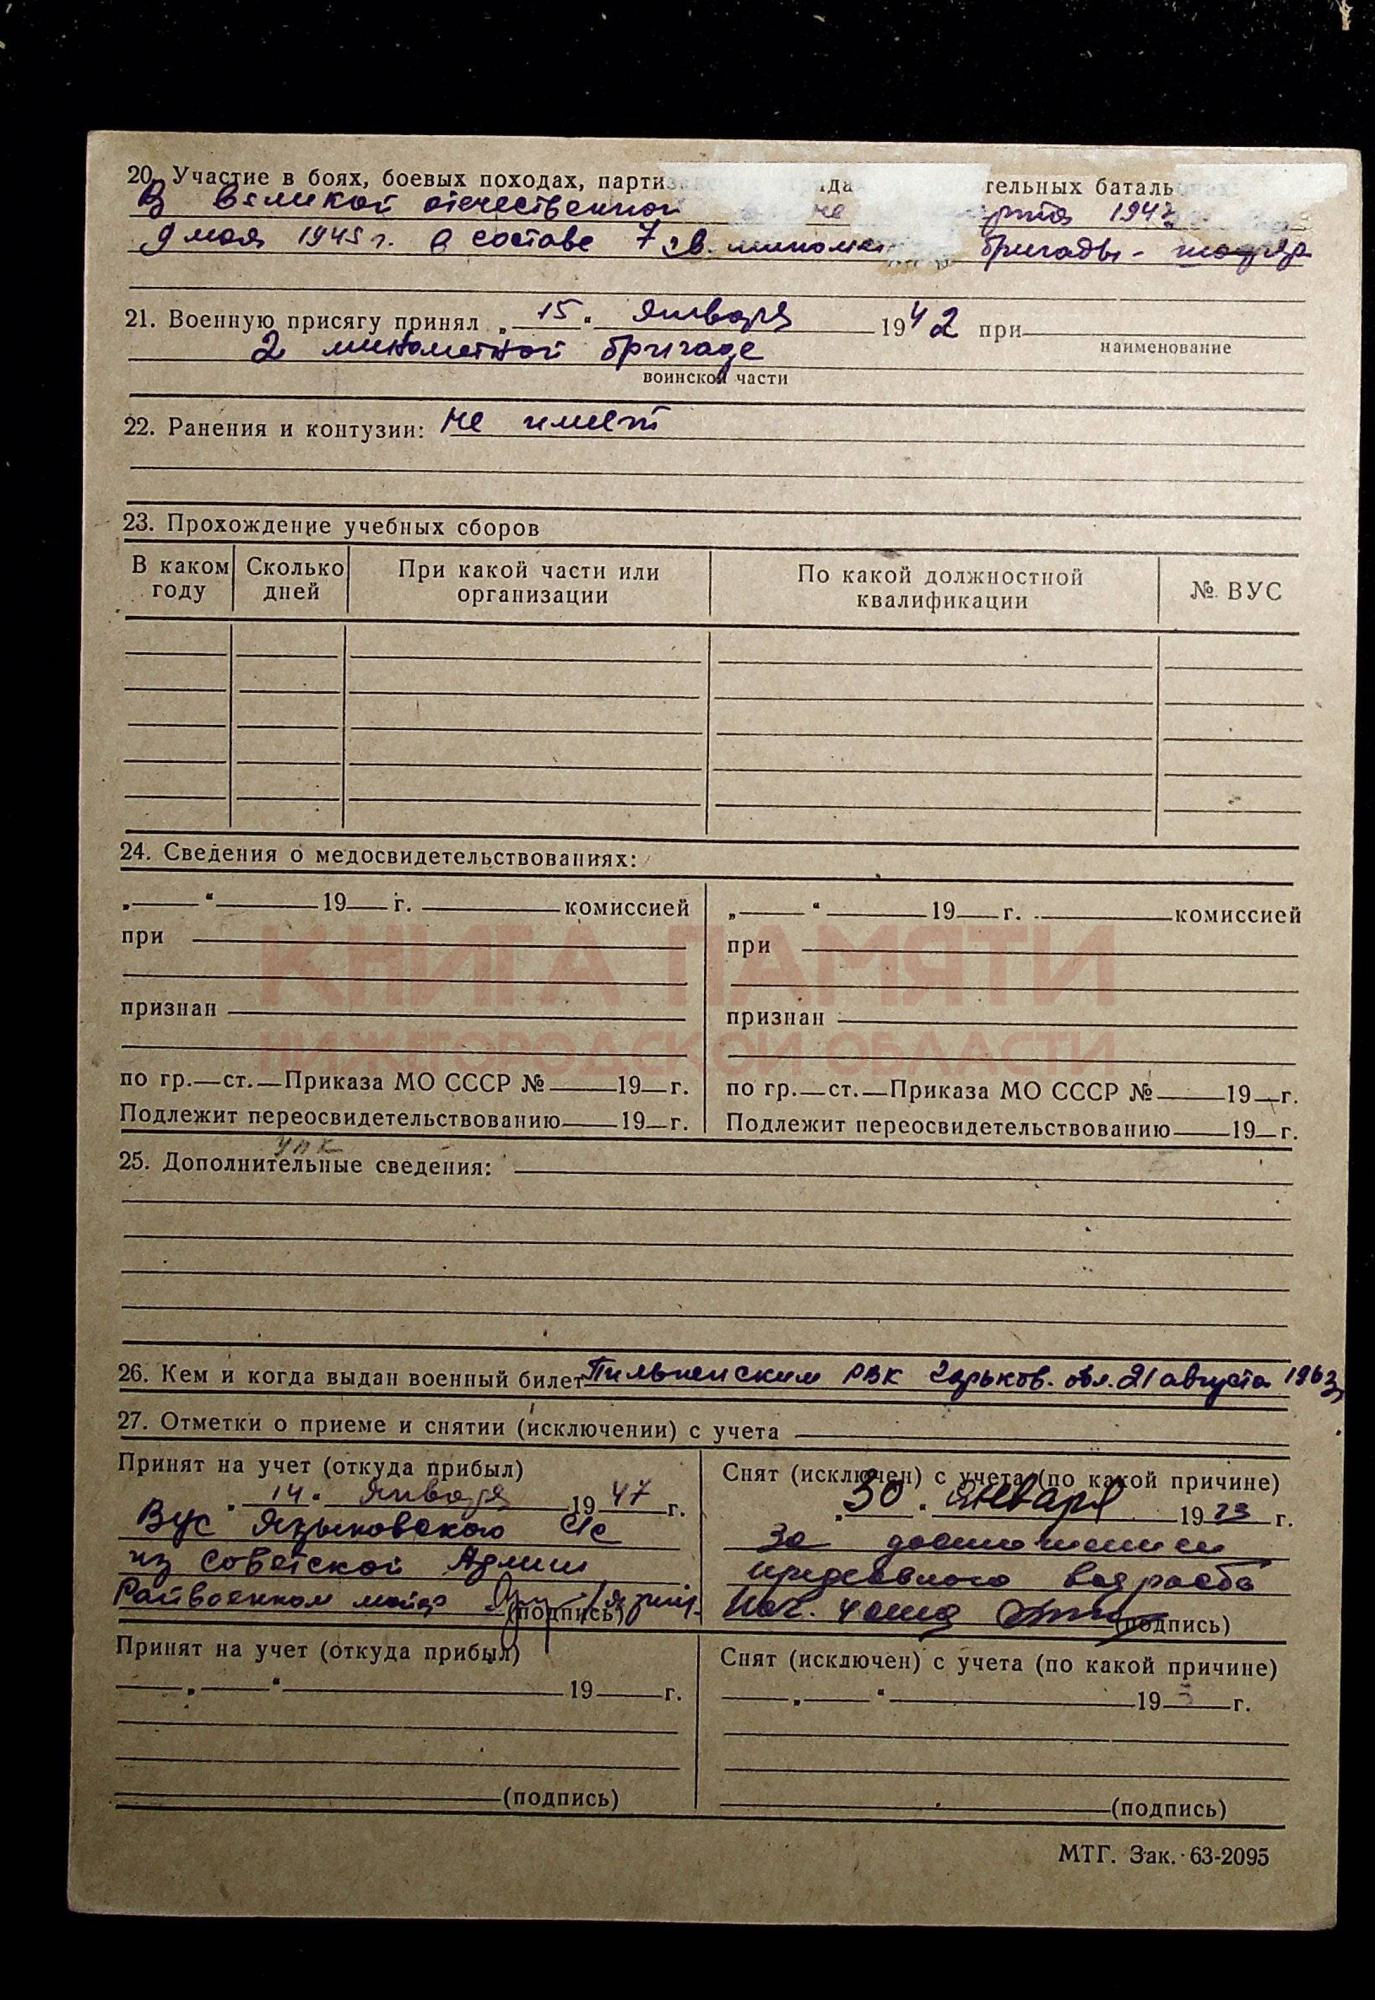 20. Участие в боях, боевых походах, парти тельных баталь
В великой отечественной не 194
9 мая 1945 г. в составе 7 бригады -
21. Военную присягу принял „15“ января 1942 при
наименование
2 минометной бригаде
воинской части
22. Ранения и контузии: Не имеет
23. Прохождение учебных сборов
В каком году Сколько дней При какой части или организации По какой должностной квалификации № ВУС
24. Сведения о медосвидетельствованиях:
„ “ 19 г. комиссией
при
признан
по гр. ст. Приказа МО СССР № 19 г.
Подлежит переосвидетельствованию 19 г.
„ “ 19 г. комиссией
при
признан
по гр. ст. Приказа МО СССР № 19 г.
Подлежит переосвидетельствованию 19 г.
КНИГА ПАМЯТИ
НИЖЕГОРОДСКОЙ ОБЛАСТИ
упк
25. Дополнительные сведения:
26. Кем и когда выдан военный билет Пильненским РВК Горьков. обл. 21 августа 1963
27. Отметки о приеме и снятии (исключении) с учета
Принят на учет (откуда прибыл)
„14“ января 1947 г.
Вус Языковского с/с
из Советской Армии
Райвоенком майор
(подпись)
Снят (исключен) с учета (по какой причине)
„30“ января 1973 г.
За достижением
предельного возраста
Нач. 4 отд
(подпись)
Принят на учет (откуда прибыл)
„ “ 19 г.
(подпись)
Снят (исключен) с учета (по какой причине)
„ “ 19 г.
(подпись)
МТГ. Зак. 63-2095